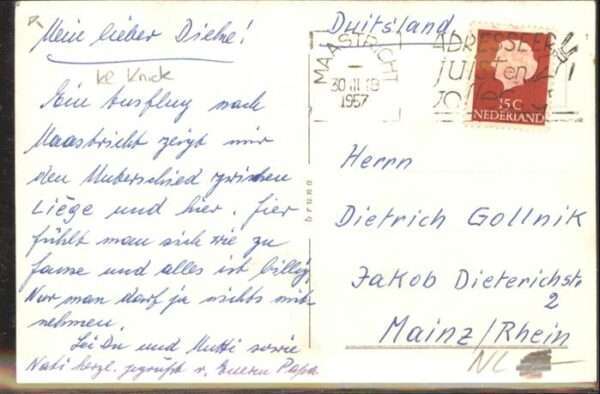 Mein lieber Dieke!
ke Knick
Ein Ausflug nach
Maastricht zeigt mir
den Unterschied zwischen
Liège und hier. Hier
fühlt man sich wie zu
hause und alles ist billig.
Nur man darf ja nichts mit-
nehmen.
Sei Du und Mutti sowie
Nati herzl. gegrüßt v. Eurem Papa
bruna
Duitsland
MAASTRICHT
30 III 18
1957
ADRESSEER
JUIST en
15 C
NEDERLAND
Herrn
Dietrich Gollnik
Jakob Dieterichstr
2
Mainz/Rhein
NL